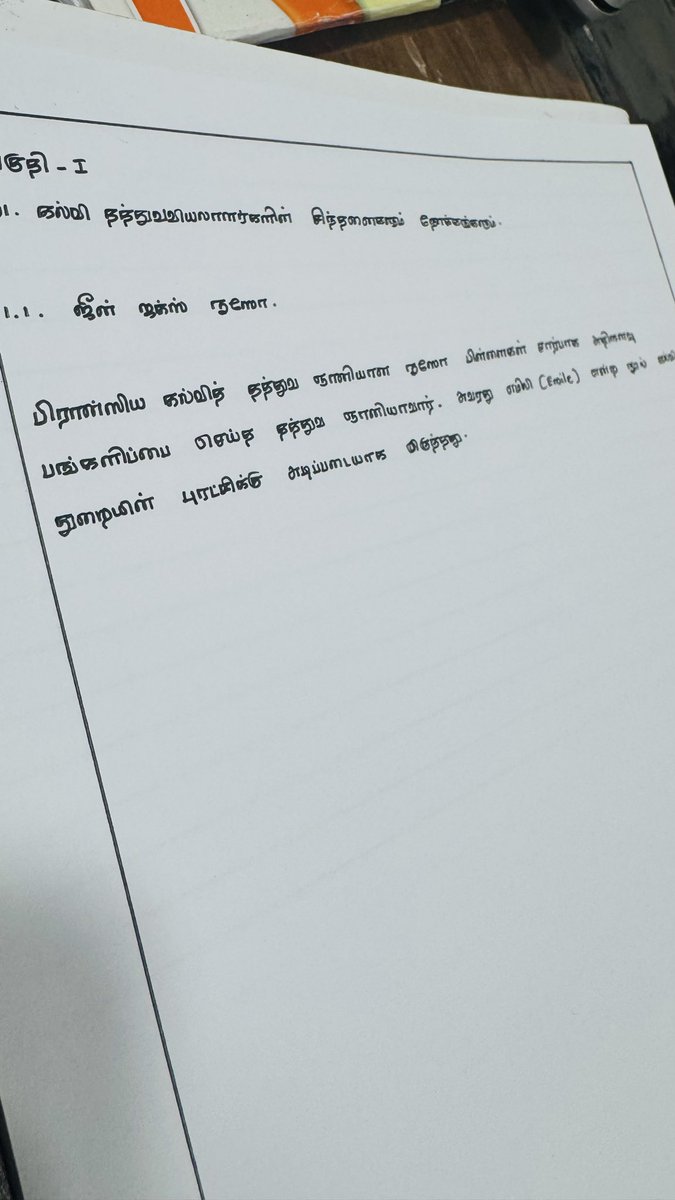 குதி - I
01. கல்வி தத்துவவியலாளர்களின் சிந்தனைகளும் நோக்கங்களும்.
1.1. ஜீன் ஜக்ஸ் ரூஸோ.
பிரான்ஸிய கல்வித் தத்துவ ஞானியான ரூஸோ பிள்ளைகள் சார்பாக அதிகளவு
பங்களிப்பை செய்த தத்துவ ஞானியாவார். அவரது எமிலி (Emile) என்ற நூல் கல்வி
துறையின் புரட்சிக்கு அடிப்படையாக இருந்தது.